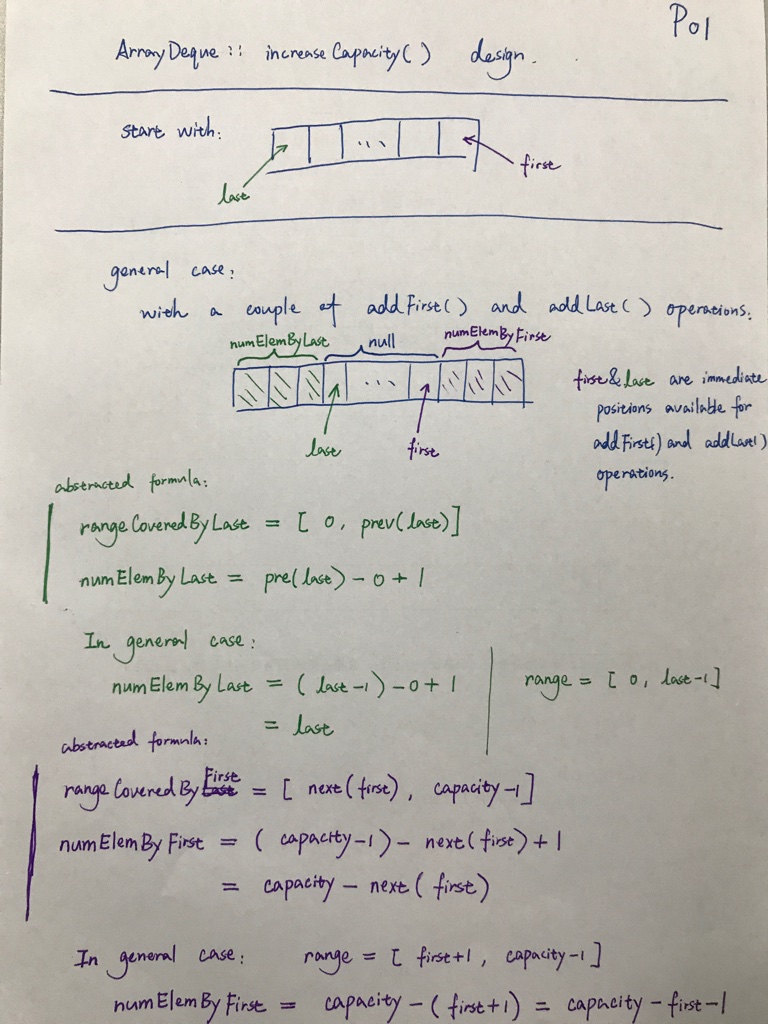 P01
ArrayDeque :: increaseCapacity( ) design.
start with:
...
last
first
general case:
with a couple of addFirst( ) and addLast( ) operations:
numElemByLast null numElemByFirst
...
last first
first&last are immediate
positions available for
addFirst() and addLast()
operations.
abstracted formula:
rangeCoveredByLast = [ 0, prev(last)]
numElemByLast = pre(last) - 0 + 1
In general case:
numElemByLast = ( last-1 ) - 0 + 1
= last
range = [ 0, last-1 ]
abstracted formula:
rangeCoveredBy Last First = [ next(first), capacity-1 ]
numElemByFirst = ( capacity-1 ) - next(first) + 1
= capacity - next( first)
In general case: range = [ first+1, capacity-1 ]
numElemByFirst = capacity - ( first+1 ) = capacity - first - 1